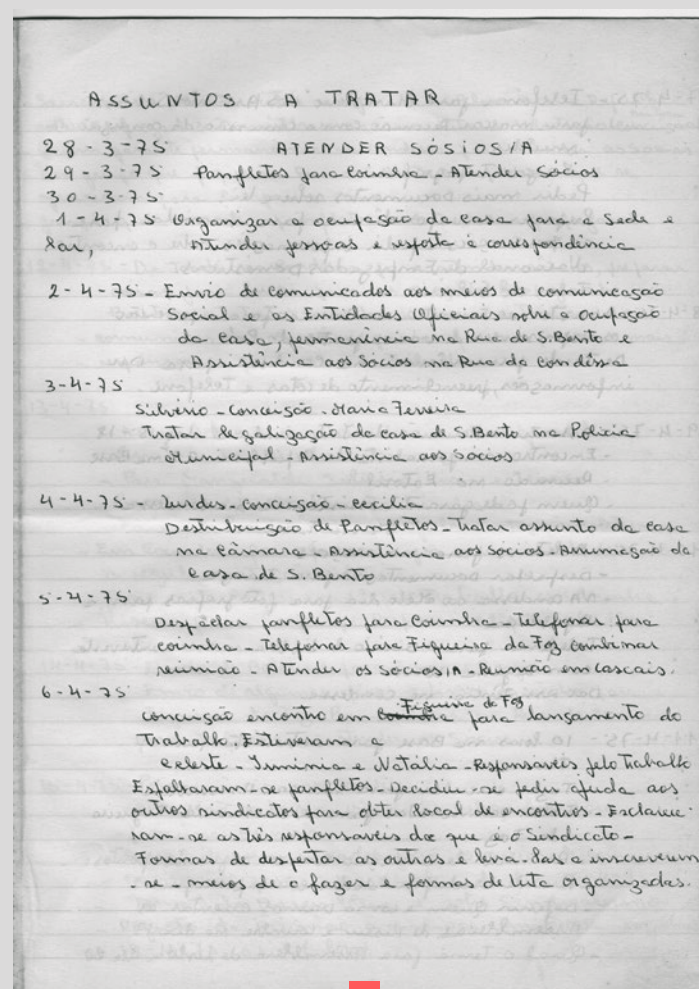 ASSUNTOS A TRATAR
28-3-75 ATENDER SÓSIOS/A
29-3-75 Panfletos para Coimbra - Atender Sócios
30-3-75
1-4-75 Organizar a ocupação da casa para a Sede e
lar, Atender pessoas e resposta à correspondência
2-4-75 - Envio de comunicados aos meios de comunicação
Social e as Entidades Oficiais sobre a ocupação
da casa, permanência na Rua de S. Bento e
Assistência aos Sócios na Rua da Condêssa
3-4-75
Silvério - Conceição - Maria Ferreira
Tratar legalização da casa de S. Bento na Policia
Municipal - Assistência aos Sócios
4-4-75 - Lurdes - Conceição - Cecilia
Destribuição de Panfletos - Tratar assunto da casa
na Câmara - Assistência aos Sócios - Arrumação da
Casa de S. Bento
5-4-75
Despachar panfletos para Coimbra - Telefonar para
Coimbra - Telefonar para Figueira da Foz combinar
reunião - Atender os Sócios/A - Reunião em Cascais.
6-4-75
Figueira da Foz
Conceição encontro em Coimbra para lançamento do
Trabalho. Estiveram a
Celeste - Irminia e Natália - Responsáveis pelo Trabalho
Espalharam-se panfletos - Decidiu-se pedir ajuda aos
outros sindicatos para obter local de encontros - Esclarece-
ram-se as três responsáveis do que é o Sindicato -
Formas de despertar as outras e levá-las a inscreverem
-se - meios de o fazer e formas de luta organizadas.